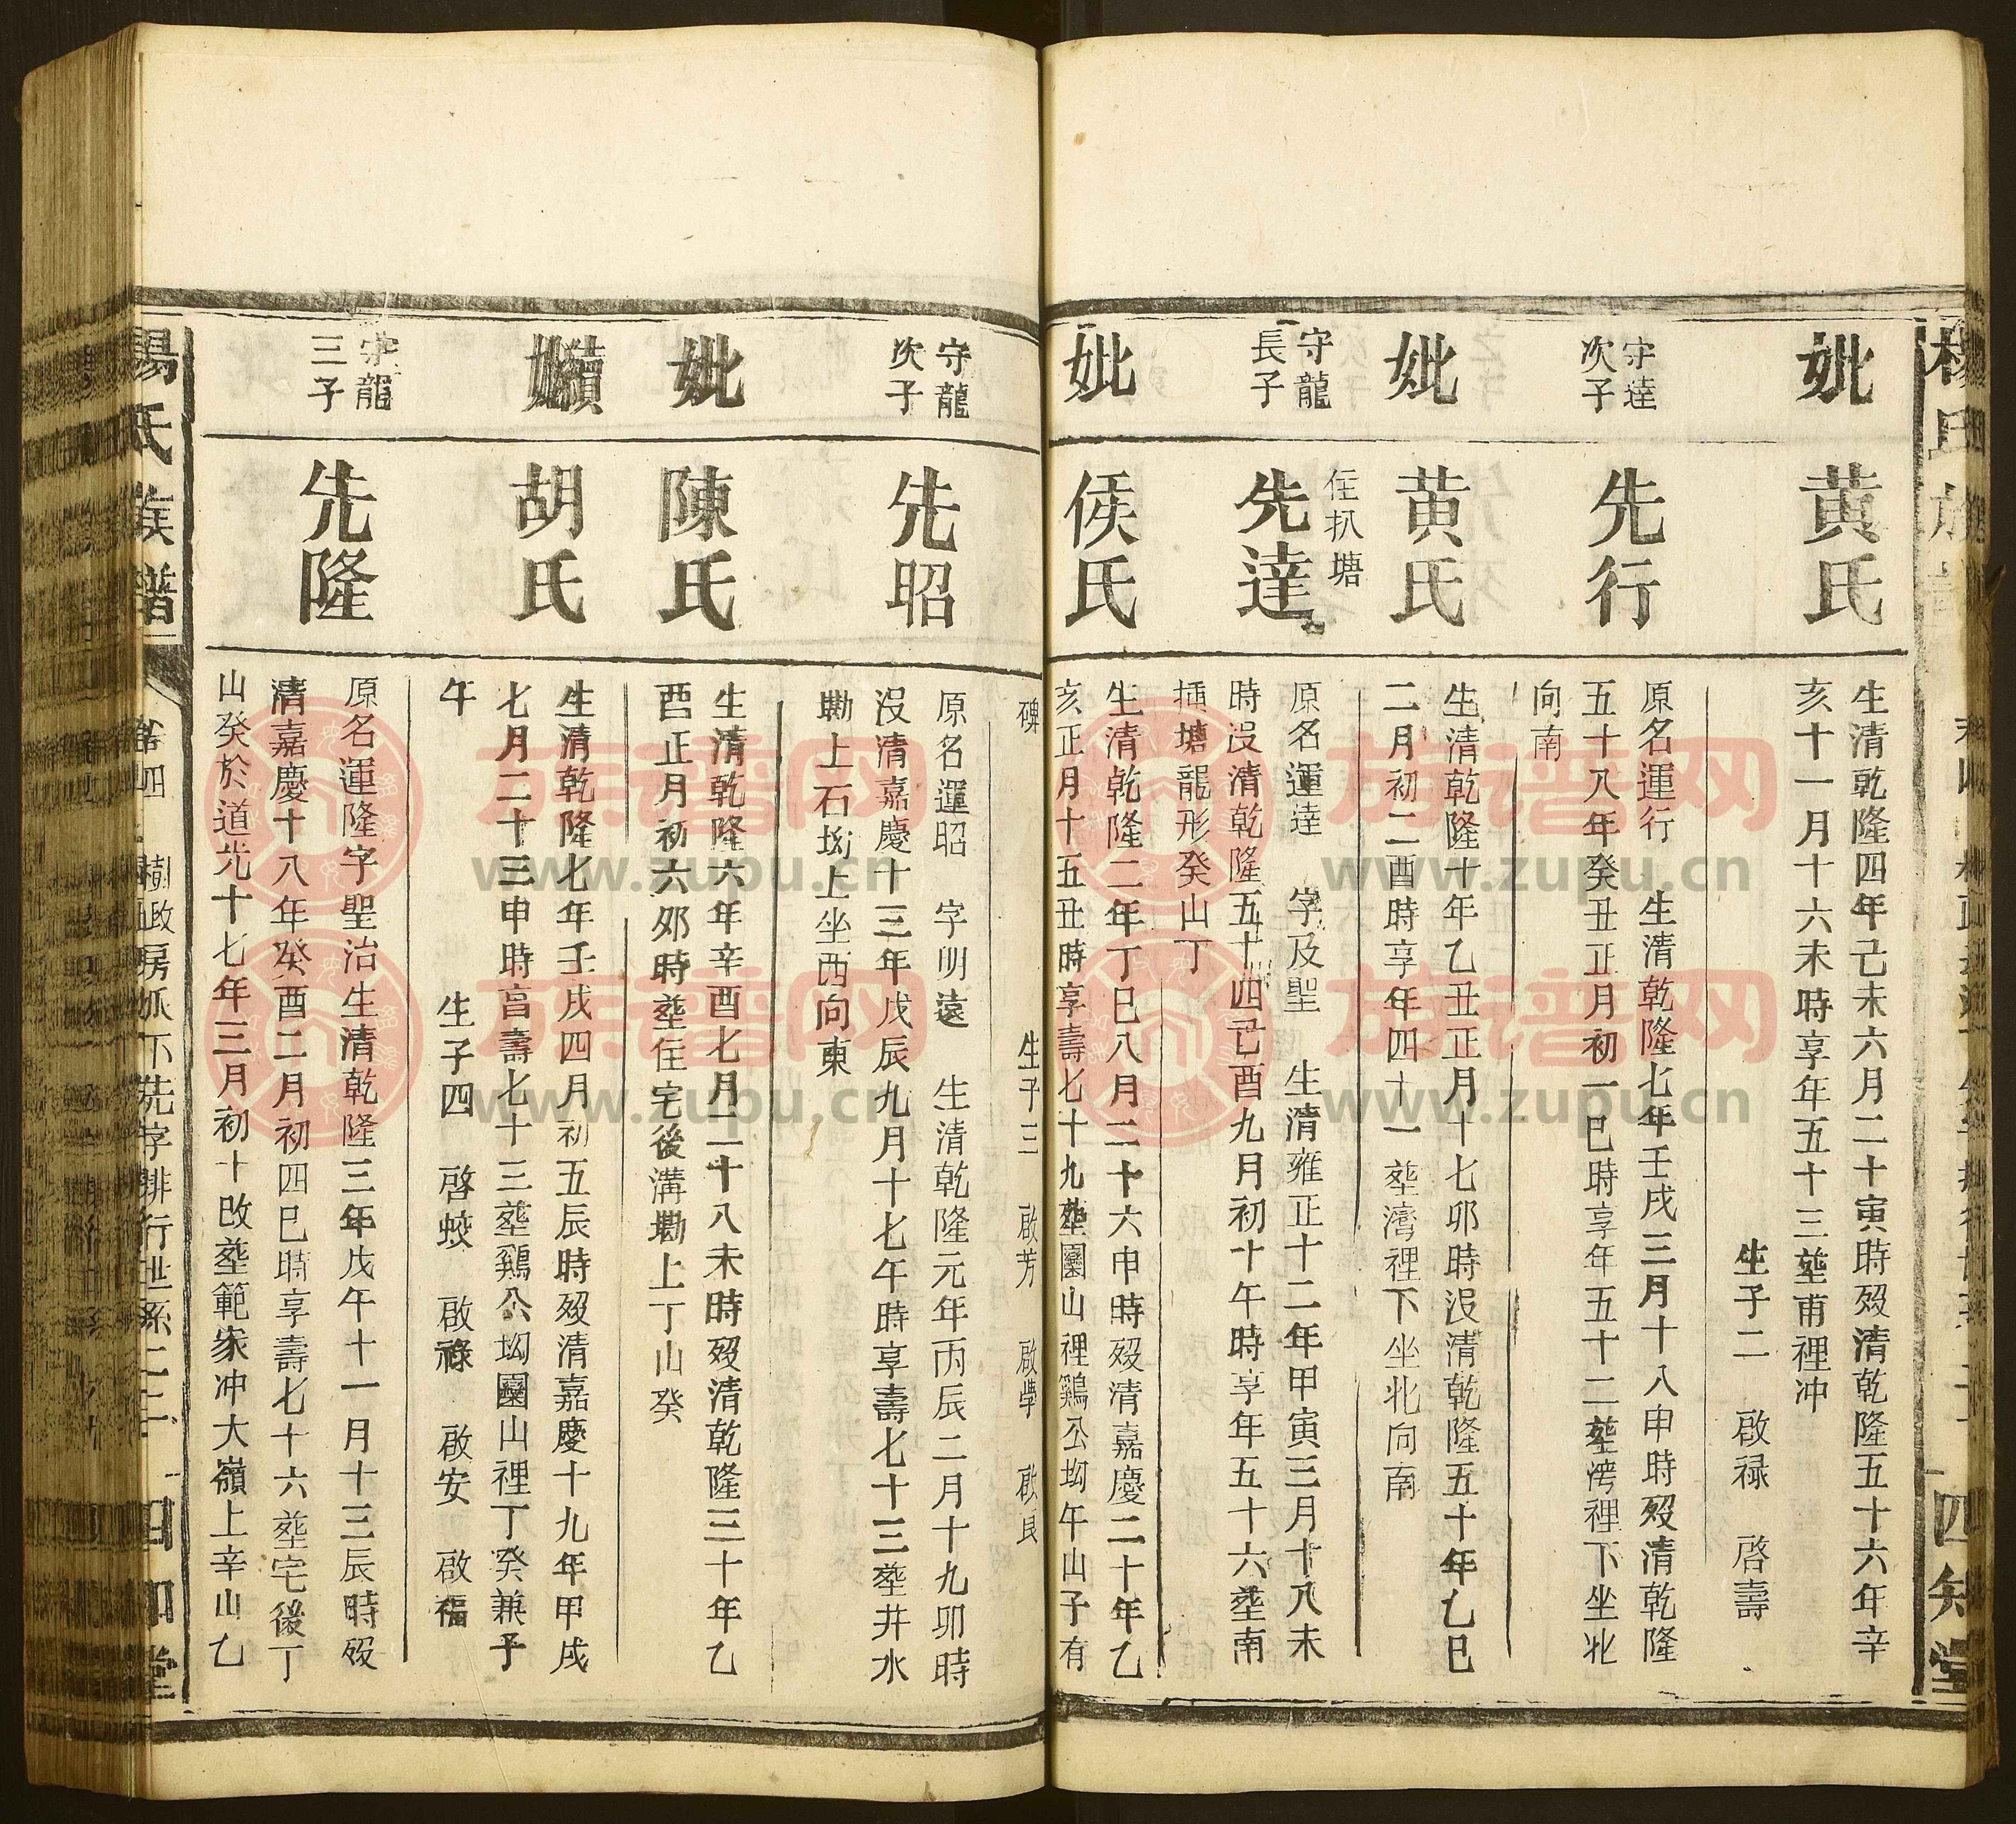 妣
黄氏
生清乾隆四年己未六月二十寅時歿清乾隆五十六年辛
亥十一月十六未時享年五十三塟甫裡冲
生子二　啟禄　啓壽
守達
次子
先行
原名運行　生清乾隆七年壬戌三月十八申時歿清乾隆
五十八年癸丑正月初一巳時享年五十二塟湾裡下坐北
向南
妣
黄氏
生清乾隆十年乙丑正月十七卯時没清乾隆五十年乙巳
二月初二酉時享年四十一塟湾裡下坐北向南
守龍
長子
住扒塘
先達
原名運達　字及聖　生清雍正十二年甲寅三月十八未
時没清乾隆五十四己酉九月初十午時享年五十六塟南
插塘龍形癸山丁
妣
侯氏
生清乾隆二年丁巳八月二十六申時歿清嘉慶二十年乙
亥正月十五丑時享壽七十九塟園山裡鷄公坳午山子有
碑　生子三　啟芳　啟學　啟良
守龍
次子
先昭
原名運昭　字明遠　生清乾隆元年丙辰二月十九卯時
没清嘉慶十三年戊辰九月十七午時享壽七十三塟井水
墈上石坳上坐西向東
妣
陳氏
生清乾隆六年辛酉七月二十八未時歿清乾隆三十年乙
酉正月初六卯時塟住宅後溝墈上丁山癸
續妣
胡氏
生清乾隆七年壬戌四月初五辰時歿清嘉慶十九年甲戌
七月二十三申時享壽七十三塟鷄公坳園山裡丁癸兼子
午　生子四　啓蛟　啟祿　啟安　啟福
守龍
三子
先隆
原名運隆字聖治生清乾隆三年戊午十一月十三辰時歿
清嘉慶十八年癸酉二月初四巳時享壽七十六塟宅後丁
山癸於道光十七年三月初十改塟範家冲大嶺上辛山乙
楊氏族譜　卷四　樹政房派下先字排行世系二三　四知堂
族谱网
www.zupu.cn
族谱网
www.zupu.cn
族谱网
www.zupu.cn
族谱网
www.zupu.cn